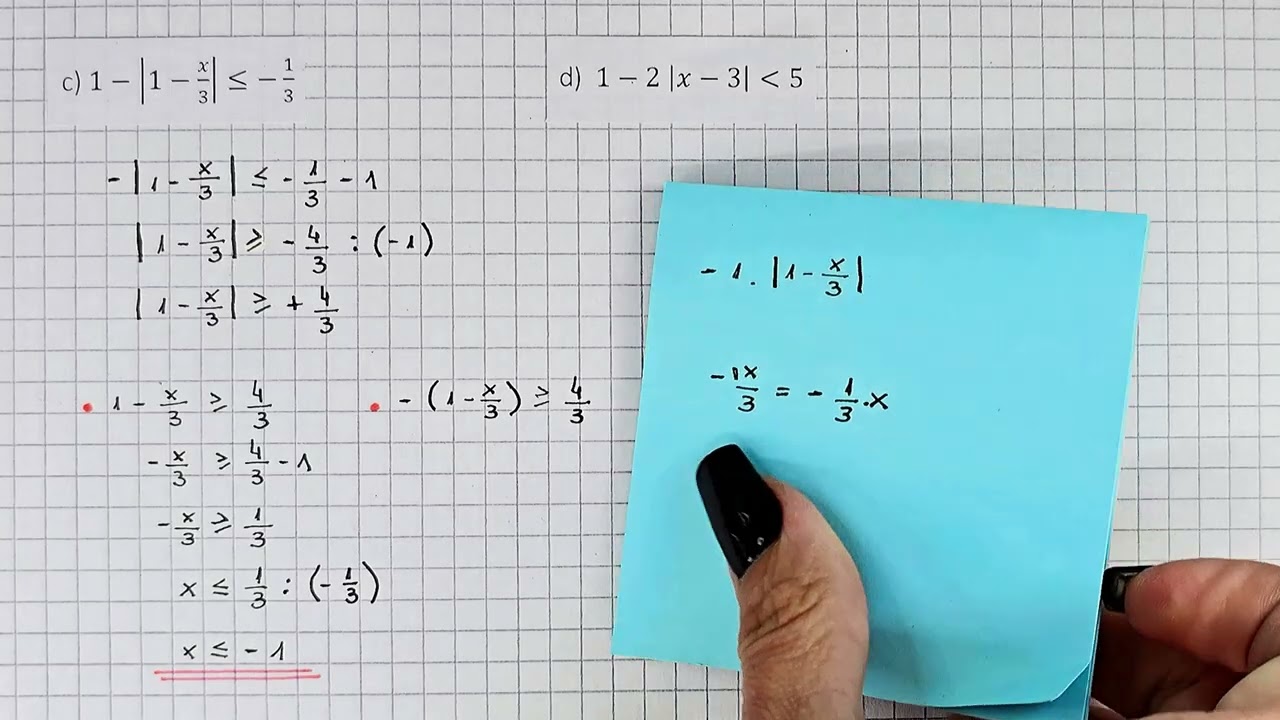 c) 1 − |1 − x/3| ≤ − 1/3
d) 1 − 2 |x − 3| < 5
- |1 - x/3| ≤ - 1/3 - 1
|1 - x/3| ≥ - 4/3 : (-1)
|1 - x/3| ≥ + 4/3
• 1 - x/3 ≥ 4/3
- x/3 ≥ 4/3 - 1
- x/3 ≥ 1/3
x ≤ 1/3 : (- 1/3)
x ≤ - 1
• - (1 - x/3) ≥ 4/3
- 1 . |1 - x/3|
- 1x/3 = - 1/3 . x